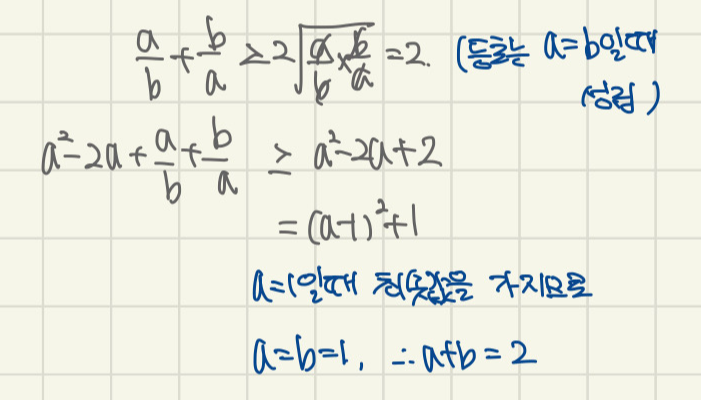 a/b + b/a ≥ 2√(a/b × b/a) = 2. (등호는 a=b일때
성립)
a²-2a + a/b + b/a ≥ a²-2a+2
= (a-1)²+1
a=1일때 최솟값을 가지므로
a=b=1, ∴ a+b=2